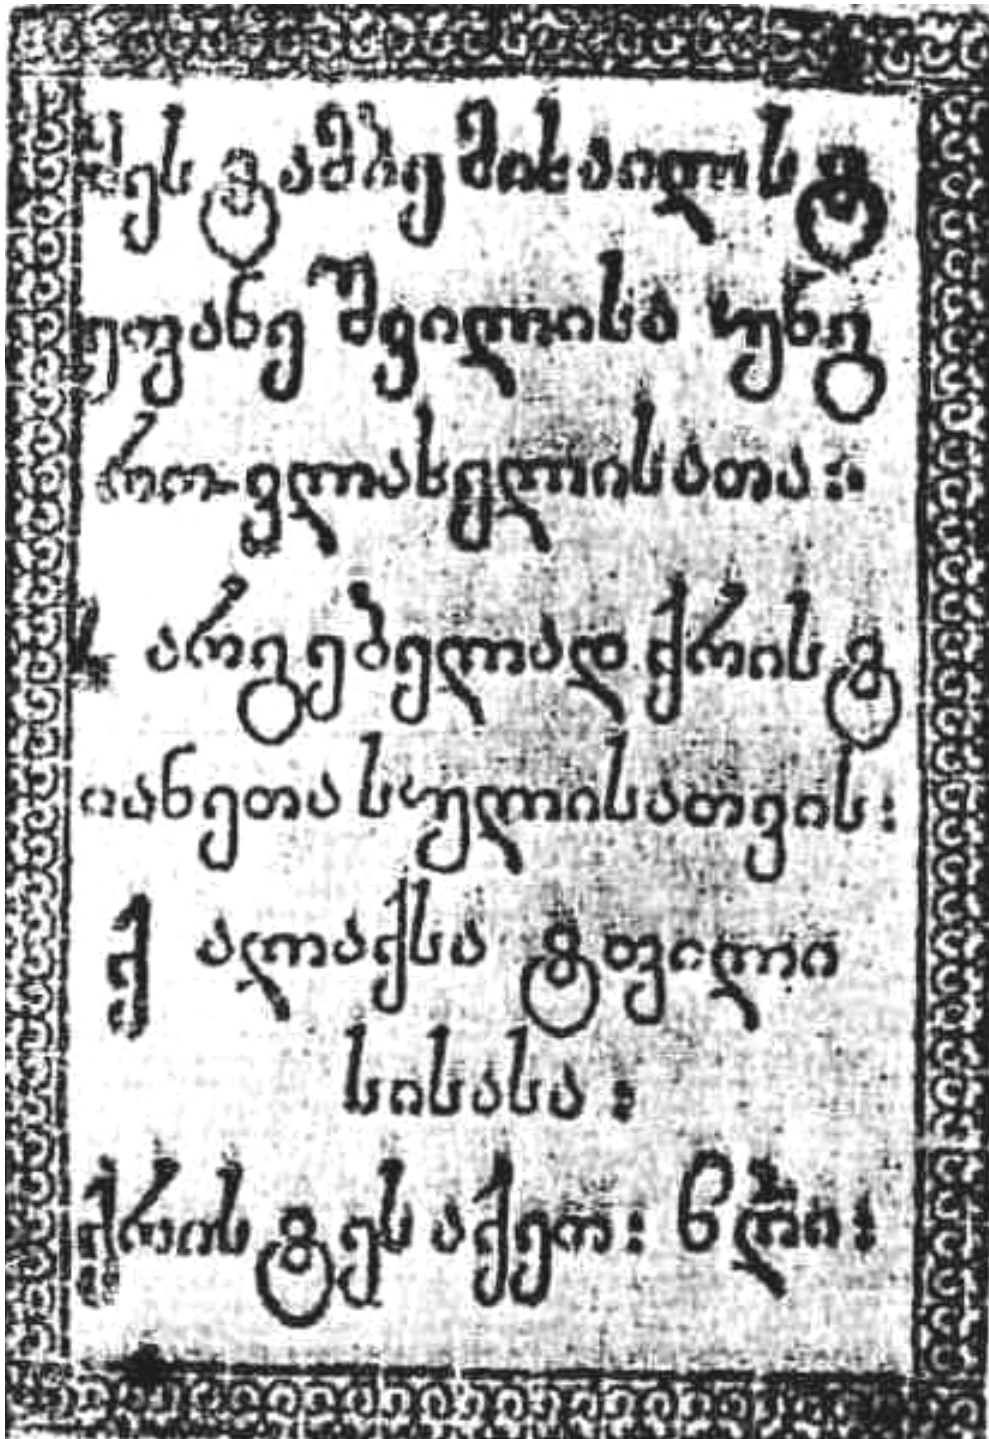 მესტამბე მიხაილ სტ
ეფანე შვილისა უნგ
როვლახელისათა :
სარგებელად ქრისტ
იანეთა სულისათვის :
ქალაქსა ტფილი
სისასა :
ქრისტეს აქეთ : ჩღი :